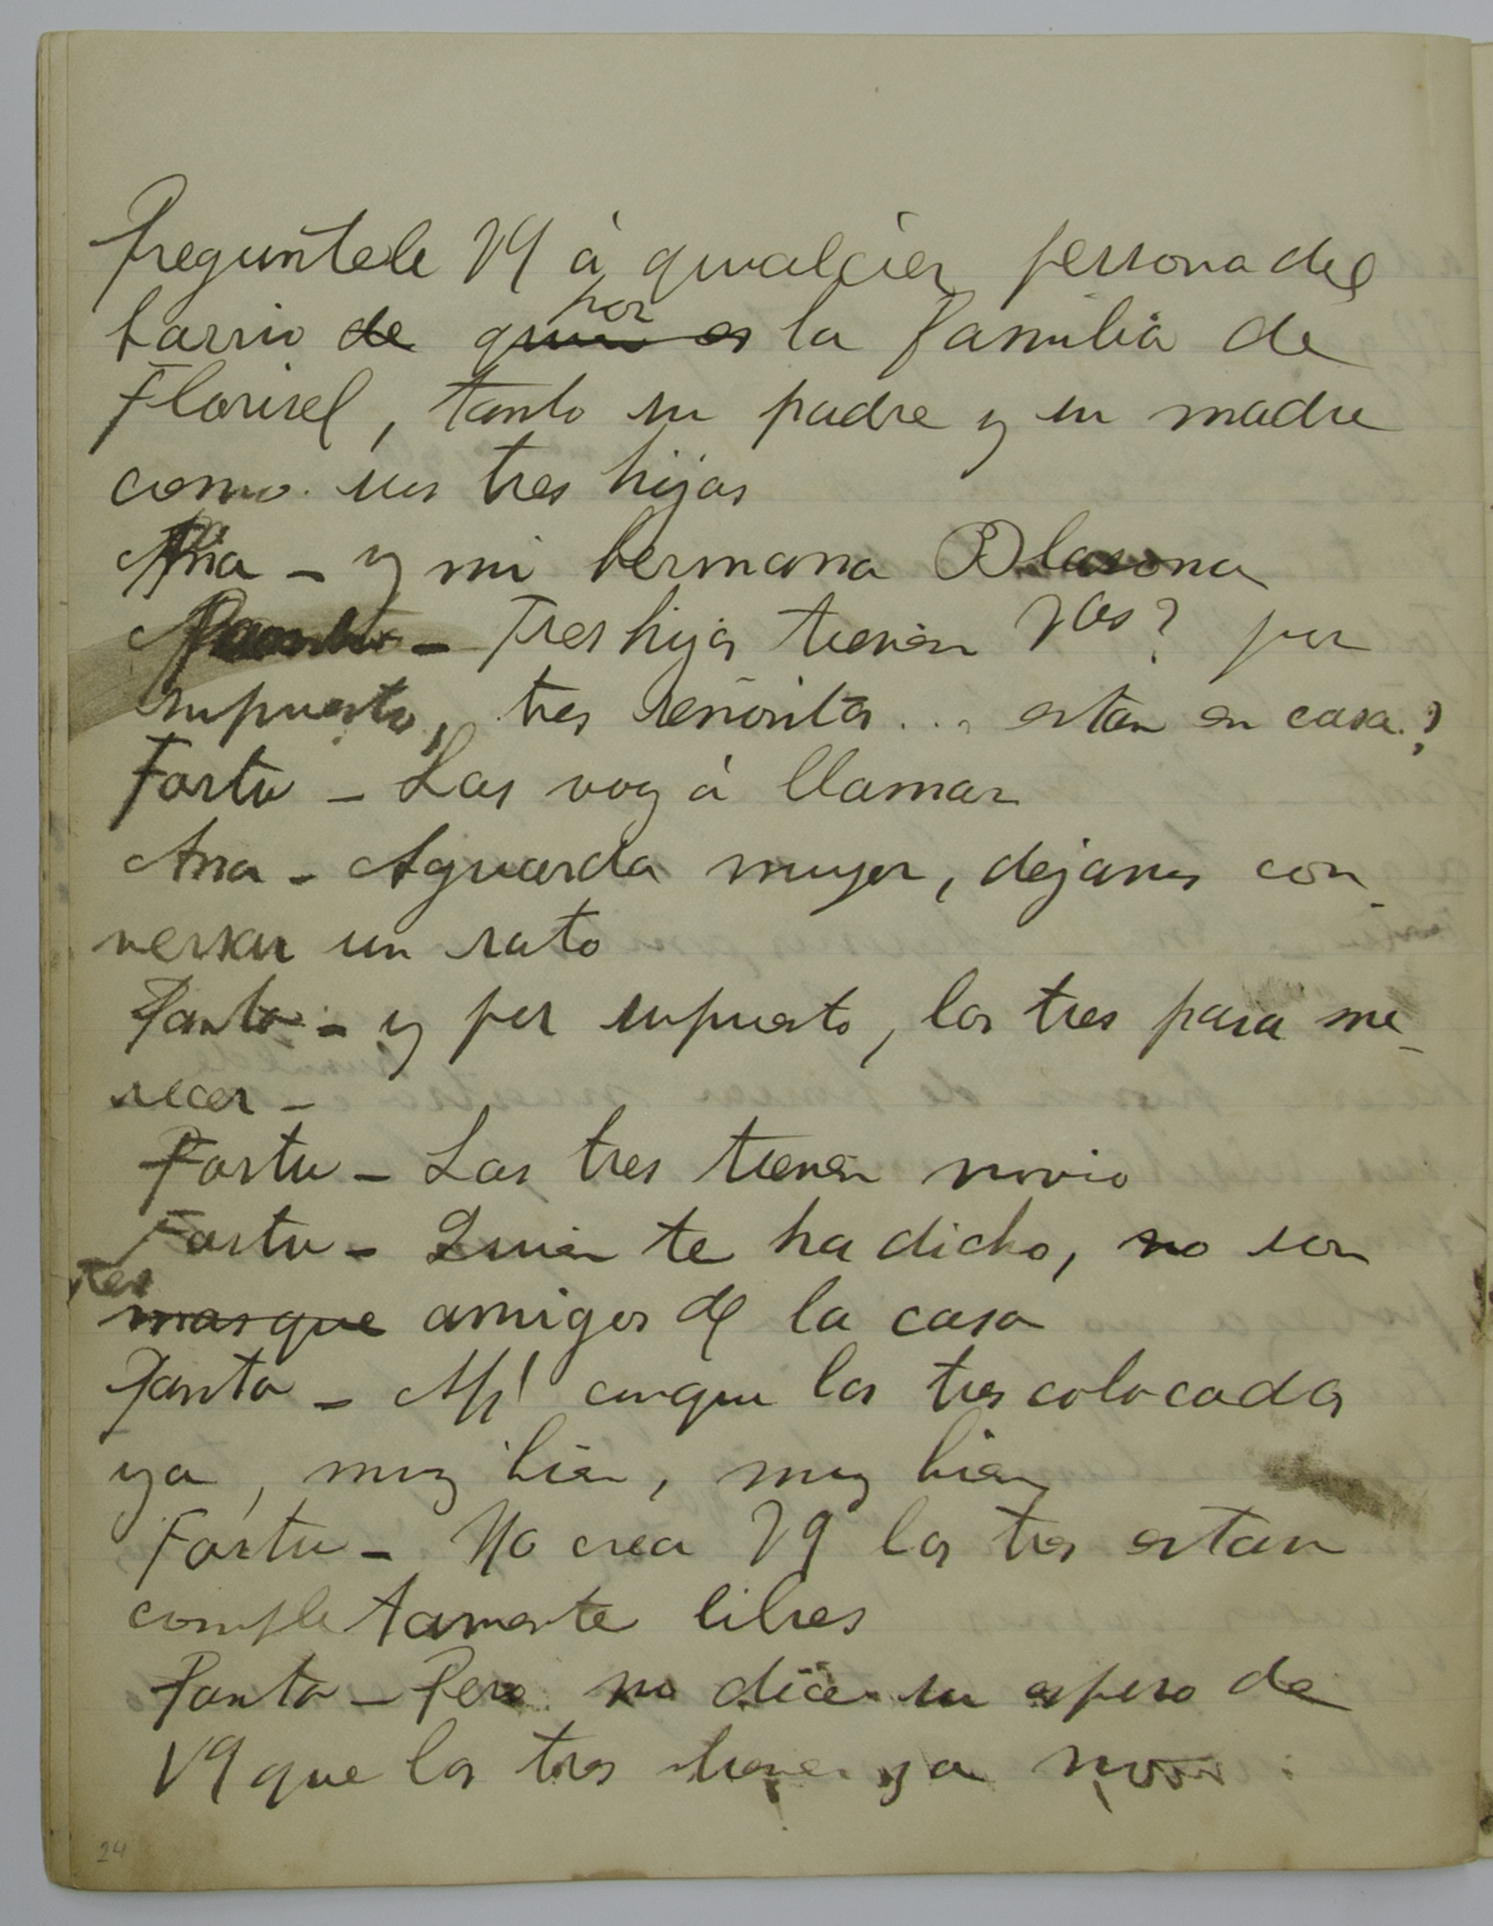 Preguntele Vd á qualcier persona del
barrio de quien es por la familia de
Florisel, tanto su padre y su madre
como sus tres hijas
Ana - y mi hermana Blasona
Panto - Tres hijas tienen Vds? por
supuesto, tres señoritas... estan en casa?
Fortu - Las voy á llamar
Ana - Aguarda mujer, dejanos con
versar un rato
Panto - y por supuesto, las tres para me
recer -
Fortu - Las tres tienen novio
Fortu - Quien te ha dicho, no son
mas que amigos de la casa
Panto - Ah! conque las tres colocadas
ya, muy bien, muy bien
Fortu - No crea Vd las tres estan
completamente libres
Panto - Pero no dice su esposo de
Vd que las tres tienen ya novio
24